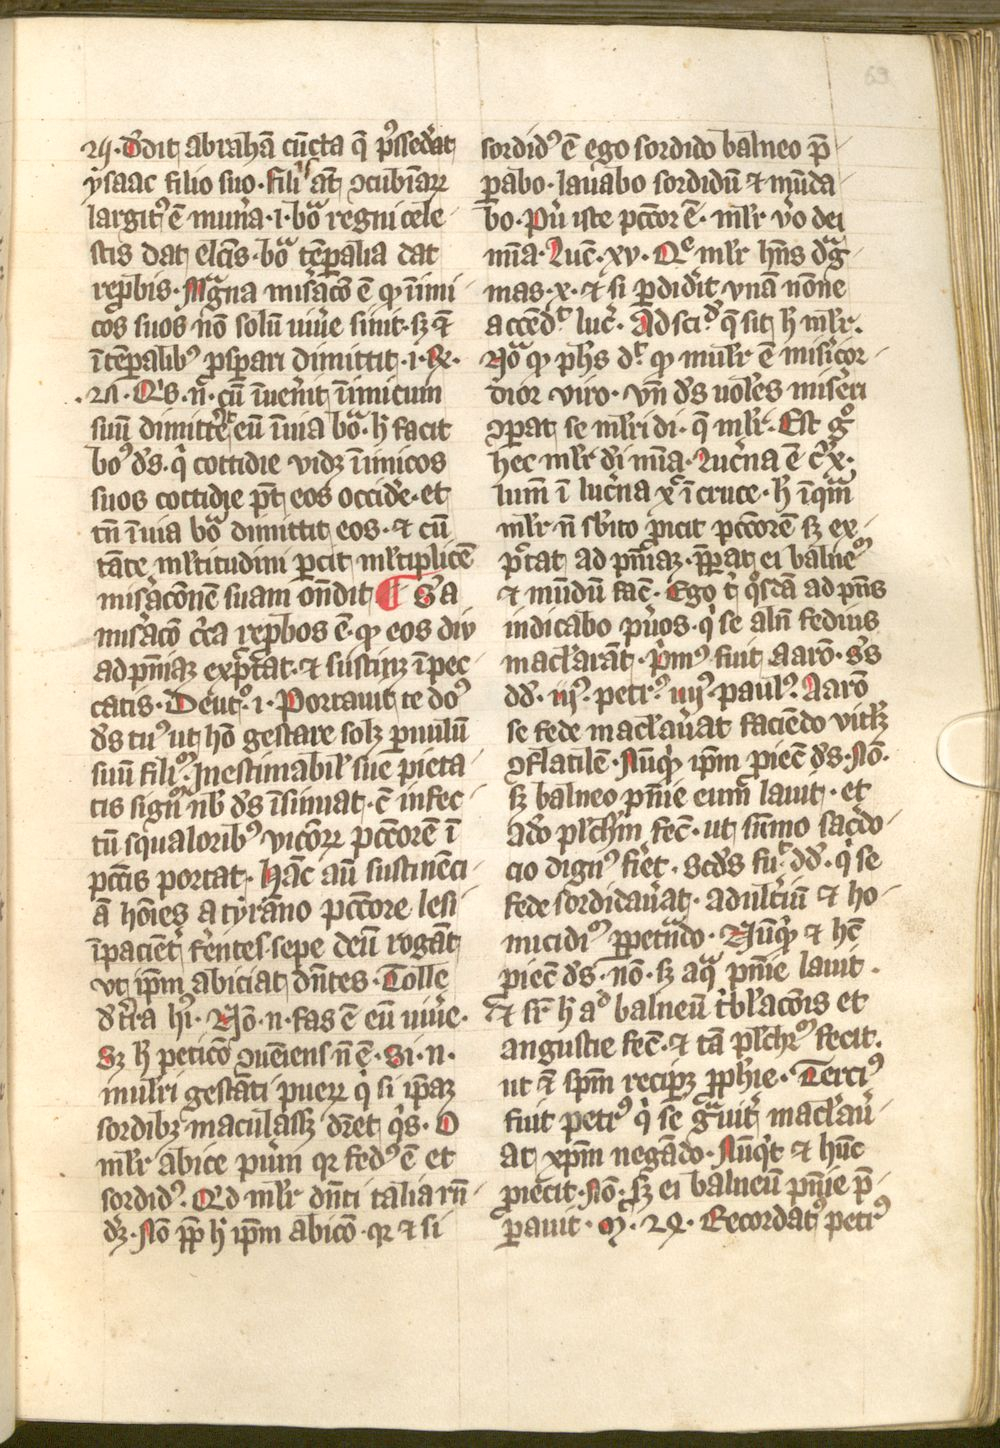 69
xij. Dedit abrahā cūcta q̄ p̓ssed̓at
ysaac filio suo. fili᷒s at̄ ꝯcubinaꝝ
largit᷒ ē mun̓a .i. boᷓ regni cele
stis dat elc̄is. boᷓ tēꝑalia dat
rep̱bis. Mᷓgna mis̓acō ē qꝫ īimi
cos suos nō solū uiu̓e sinit. sꝫ ⁊
ī tēꝑalibꝰ ꝓspari dimittit .i. ꝶe.
Qꝰs .n̄. cū īuen̓it īimicum
suū dimittet eū ī uia boᷓ. h̄ facit
boꝰ d̄s. q̓ cottidie vidꝫ īimicos
suos cottidie pt̄ eos occid̓e. et
tn̄ ī uia boᷓ dimittit eos. ⁊ cū
tāte ml̓titudini ꝑcit ml̓tiplicē
mis̓acōnem suam on̄dit ¶ S̓a
mis̓acō c̓ca rep̱bos ē. qꝫ eos diu
ad pn̄iaꝫ expc̄tat. ⁊ sustinꝫ ī pec
catis. Deut᷒. i. Portauit te doꝰ
d̄s tuꝰ ut hō gestare solꝫ ꝑuulū
suū filiū. Inestimabil̓ sue pieta
tis signū nb̄ d̄s īsinuat. ē infec
tū squaloribꝰ vicōꝝ pcc̄orē ī
pcc̄is portat. Hāc aū sustinēci
ā hōīes a tyrāno pcc̄ore lesi
īpaciēt̓ fērētes. sepe deū rogāt
vt ip̄m abiciat dn̄tes. Tolle
d̓ t̓ra h̓i. Nō .n. fas ē eū uiu̓e.
Sꝫ h̄ peticō ꝯueniens n̄ ē. Si .n.
mulr̄i gestāti pueꝝ q̓ si ip̄aꝫ
sordibꝫ maculassꝫ dr̄et q̓s. O
ml̓r abice pu̓m qꝛ fedꝰ ē et
sordidꝰ. Qd ml̓r dn̄ti talia rn̄
dꝫ. Nō ꝓp̄ h̄ ip̄m abicō. qꝛ ⁊ si
sordidꝰ ē ego sordido balneo p̄
ꝑabo. lauabo sordidū ⁊ mūda
bo. Pu̓ iste pcc̄or ē. ml̓r v̓o dei
mīa. Luc̄. xv. Qͤ ml̓r hn̄s dᷓg
mas .x. ⁊ si ꝑdid̓it vnā nōne
accēdꝫ luc̓. Ad sciᷤ q̄ sit h̄ ml̓r.
Noᷓ qꝫ ph̄s dꝫ qꝫ mul̓r ē mis̓icor
dior viro. vn̄ d̄s uolēs mis̓eri
ꝯꝑat se ml̓ri di. q̄ ml̓r. Est gͦ
hec ml̓r d̓i mīa. Luc̓na ē c̓ x.
lum̄ ī luc̓na xᷤ ī cruce. h̄ īqᷓm
ml̓r n̄ sb̓ito ꝓicit pcc̄orē sꝫ ex
pc̄tat ad pn̄iaꝫ. p̱ꝑat ei balneū
⁊ mūdū facē. Ego t̓ q̓sdā ad pn̄s
indicabo pu̓os. q̓ se aln̄ fedius
macl̓arāt. p̓mꝰ fuit Aarō. s̓s
dd̄. iijꝰ. petrꝰ. iiijꝰ. paulꝰ. Aarō
se fede macl̓au̓at faciēdo vitl̓ꝫ
ꝯflatilē. Nūqꝫ ip̄m ꝓiec̄ d̄s. Nō.
sꝫ balneo pn̄ie eum̄ lauit. et
ad̓o pl̓chm̄ fec̄. ut sūmo sac̓do
cio dignꝰ fi̓et. scd̄s fuᷤ dd̄. q̓ se
fede sordidau̓at. adult̓iū ⁊ ho
micidiū ꝑpetᷓndo. Nūqꝫ ⁊ hc̄
ꝓiec̄ d̄s. nō. sꝫ aqᷓ pn̄ie lauit.
Et fr̄ h̄ ad balneū t̓bl̓acōis et
angustie fec̄. ⁊ tā pl̓chrū fecit.
ut ⁊ sp̄m reciꝑꝫ ꝓph̓ie. Terciꝰ
fuit petrꝰ q̓ se gᷓuit̓ macl̓au̓
at xp̄m negādo. Nūqꝫ ⁊ hūc
ꝓiecit. Nō. Sꝫ ei balneū pn̄ie p̄
ꝑauit. M. Recordatꝰ petrꝰ